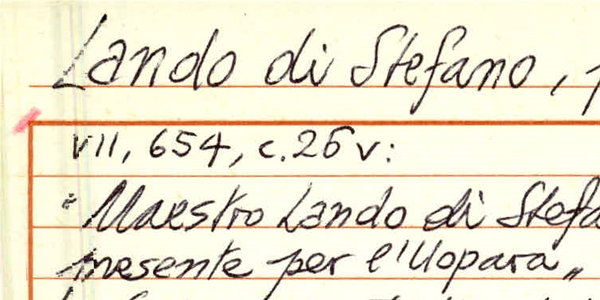 Lando di Stefano,
VII, 654, c.26v:
"Maestro Lando di Stefa
presente per l'Uopara"